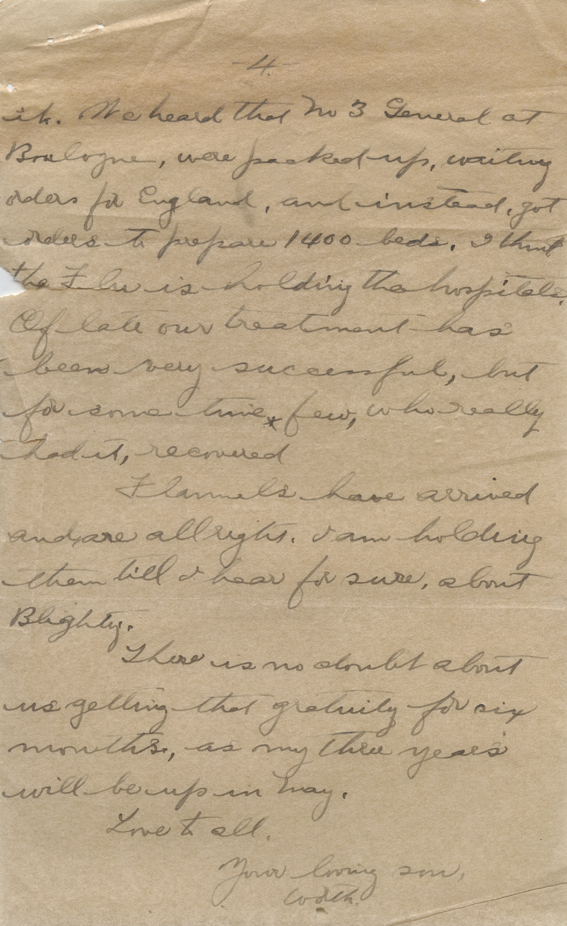 4.
it. We heard that No 3 General at
Boulogne, were packed up, waiting
orders for England, and instead, got
orders to prepare 1400 beds. I think
the Flu is holding the hospitals.
Of late our treatment has
been very successful, but
for some time, few, who really
had it, recovered
Flannels have arrived
and are all right. I am holding
them till I hear for sure, about
Blighty.
There is no doubt about
us getting that gratuity for six
months, as my three years
will be up in May.
Love to all.
Your loving son,
Worth.